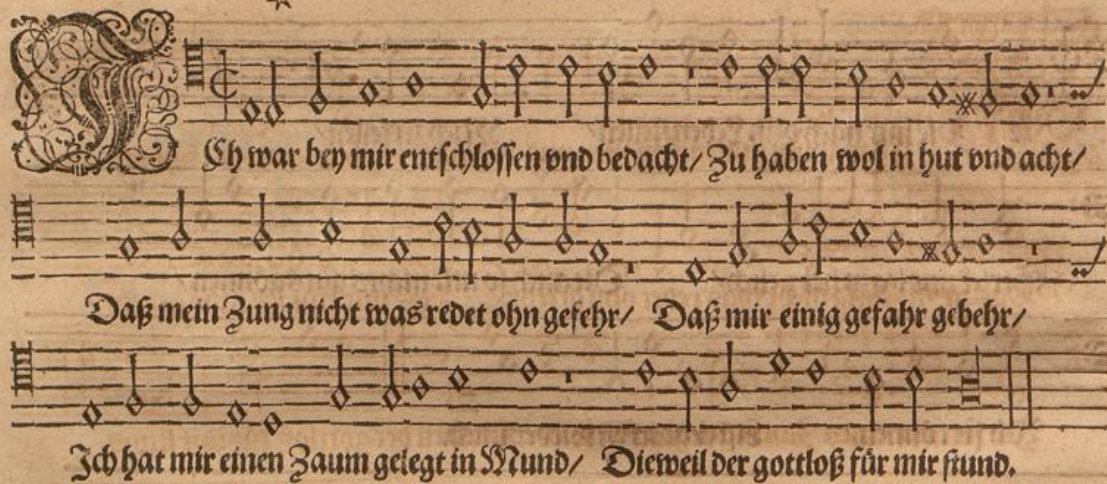 ICh war bey mir entschlossen vnd bedacht/ Zu haben wol in hut vnd acht/
Daß mein Zung nicht was redet ohn gefehr/ Daß mir einig gefahr gebehr/
Ich hat mir einen Zaum gelegt in Mund/ Dieweil der gottloß für mir stund.